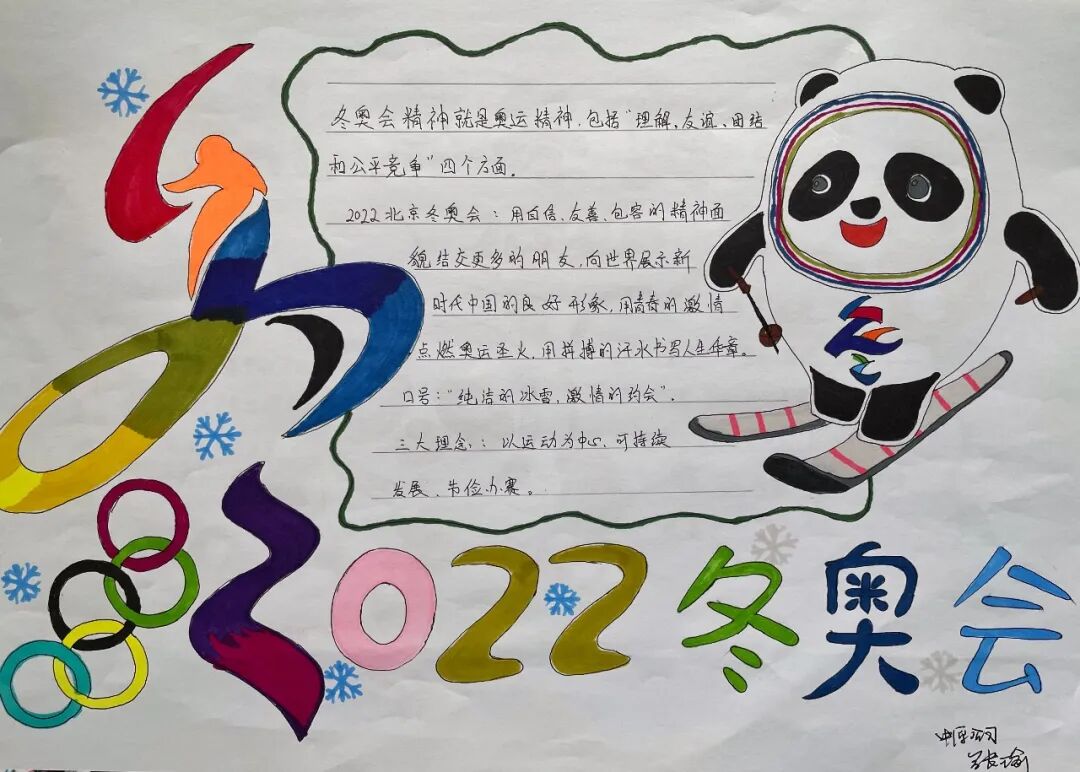 冬奥会精神就是奥运精神，包括"理解、友谊、团结
和公平竞争"四个方面。
2022北京冬奥会：用自信、友善、包容的精神面
貌结交更多的朋友，向世界展示新
时代中国的良好形象，用青春的激情
点燃奥运圣火，用拼搏的汗水书写人生华章。
口号："纯洁的冰雪，激情的约会"。
三大理念：以运动为中心、可持续
发展、节俭办赛。
2022冬奥会